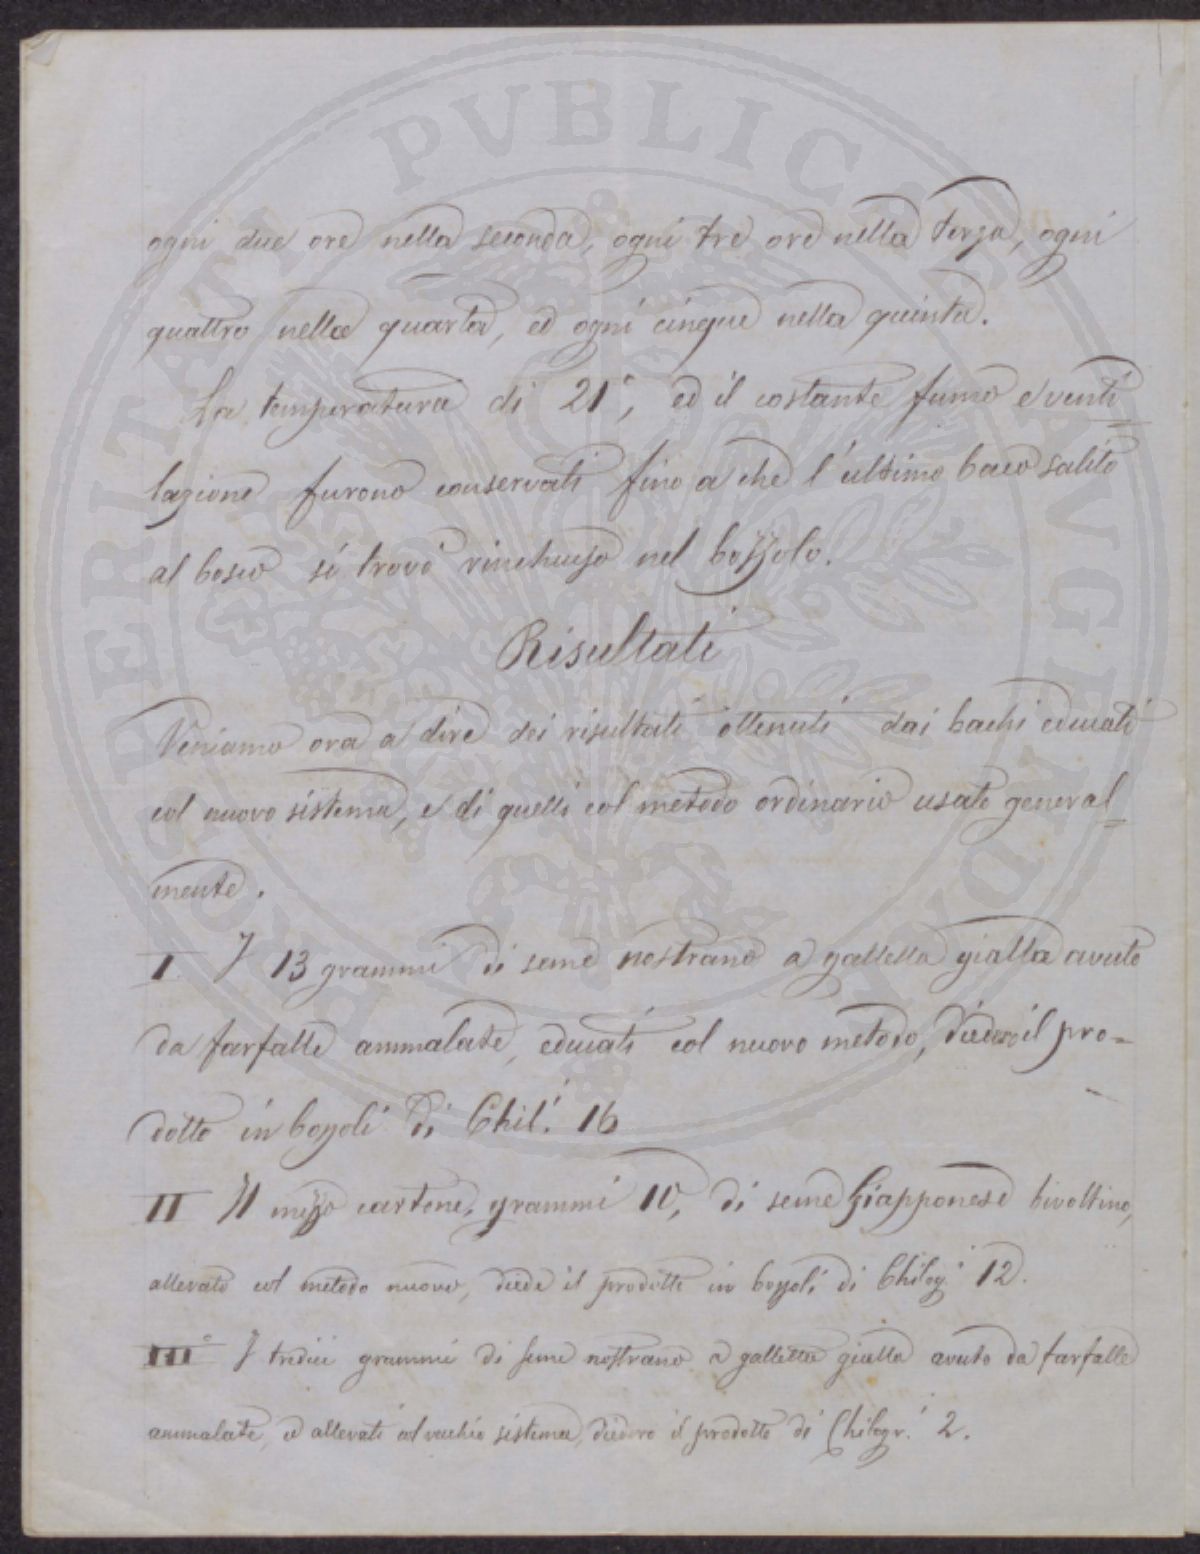 ogni due ore nella seconda, ogni tre ore nella terza, ogni
quattro nella quarta, ed ogni cinque nella quinta.
La temperatura di 21°, ed il costante fumo e venti=
lazione furono conservati fino a che l'ultimo baco salito
al bosco si trovò rinchiuso nel bozzolo.
Risultati
Veniamo ora a dire dei risultati ottenuti dai bachi educati
col nuovo sistema, e di quelli col metodo ordinario usato general=
mente.
I. I 13 grammi di seme nostrano a galletta gialla avuto
da farfalle ammalate, educati col nuovo metodo, diedero il pro=
dotto in bozzoli di Chil.i 16
II Il mezzo cartone, grammi 10, di seme Giapponese bivoltino,
allevato col metodo nuovo, diede il prodotto in bozzoli di Chilog.i 12.
III° I tredici grammi di seme nostrano a galletta gialla avuto da farfalle
ammalate, e allevati col vecchio sistema, diedero il prodotto di Chilogr.i 2.
PVBLICAE AVGENDAE PROSPERITATI